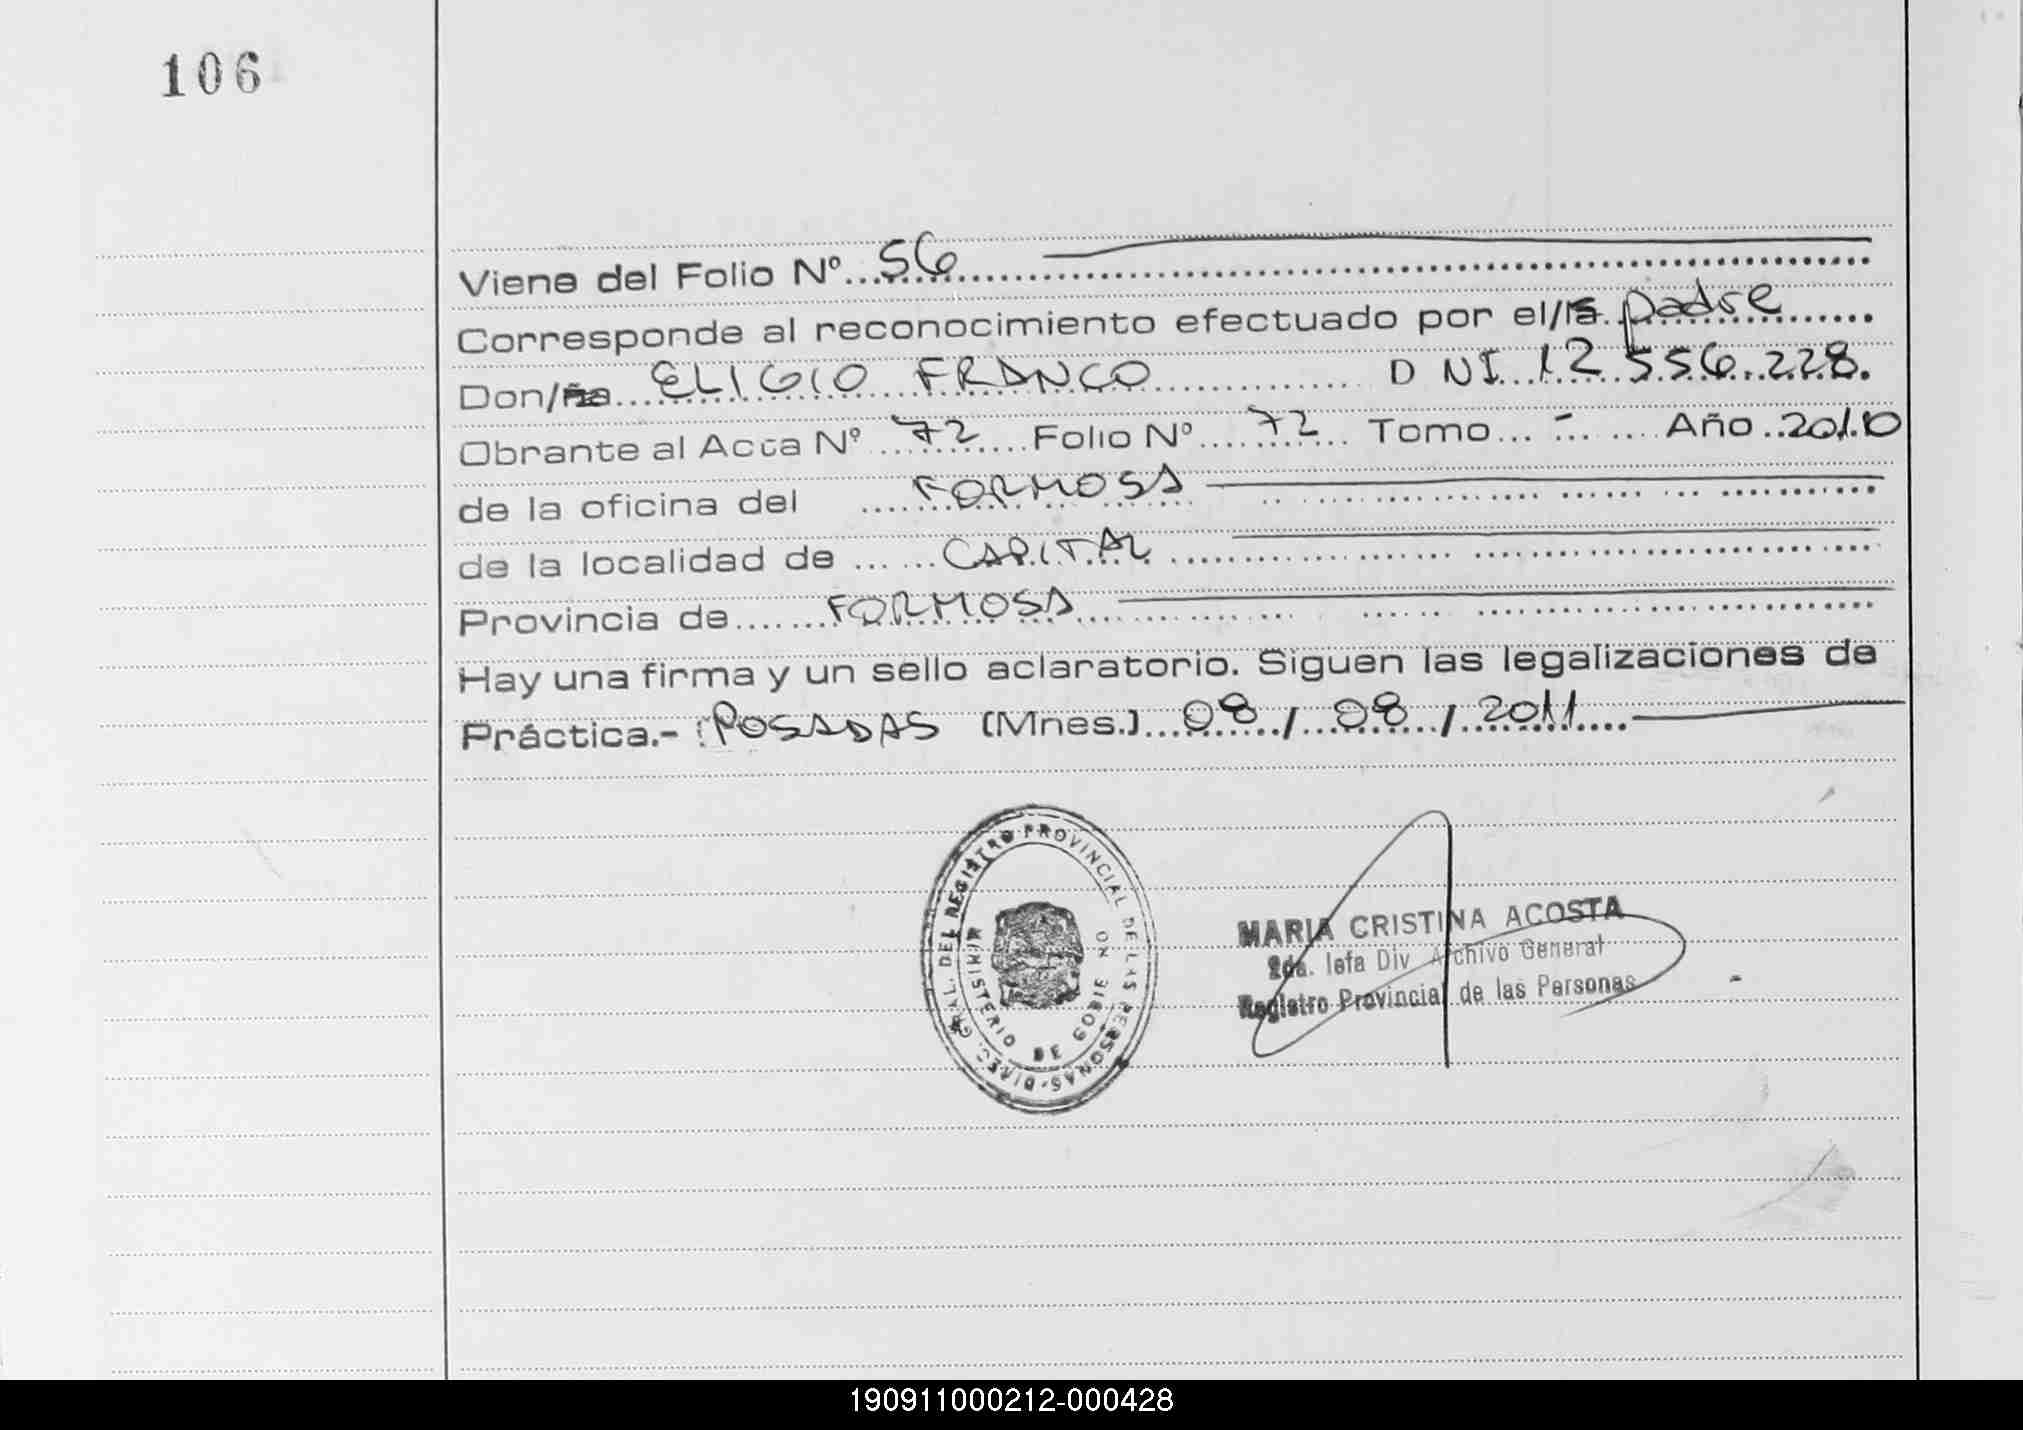 106
Viene del Folio Nº 56
Corresponde al reconocimiento efectuado por el/la padre
Don/ña ELIGIO FRANCO DNI 12.556.228.
Obrante al Acta Nº 72 Folio Nº 72 Tomo - Año 2010
de la oficina del FORMOSA
de la localidad de CAPITAL
Provincia de FORMOSA
Hay una firma y un sello aclaratorio. Siguen las legalizaciones de
Práctica.- POSADAS (Mnes.) 08 / 08 / 2011
DIREC. GRAL. DEL REGISTRO PROVINCIAL DE LAS PERSONAS
MINISTERIO DE GOBIERNO
MARIA CRISTINA ACOSTA
2da. Jefa Div Archivo General
Registro Provincial de las Personas
190911000212-000428